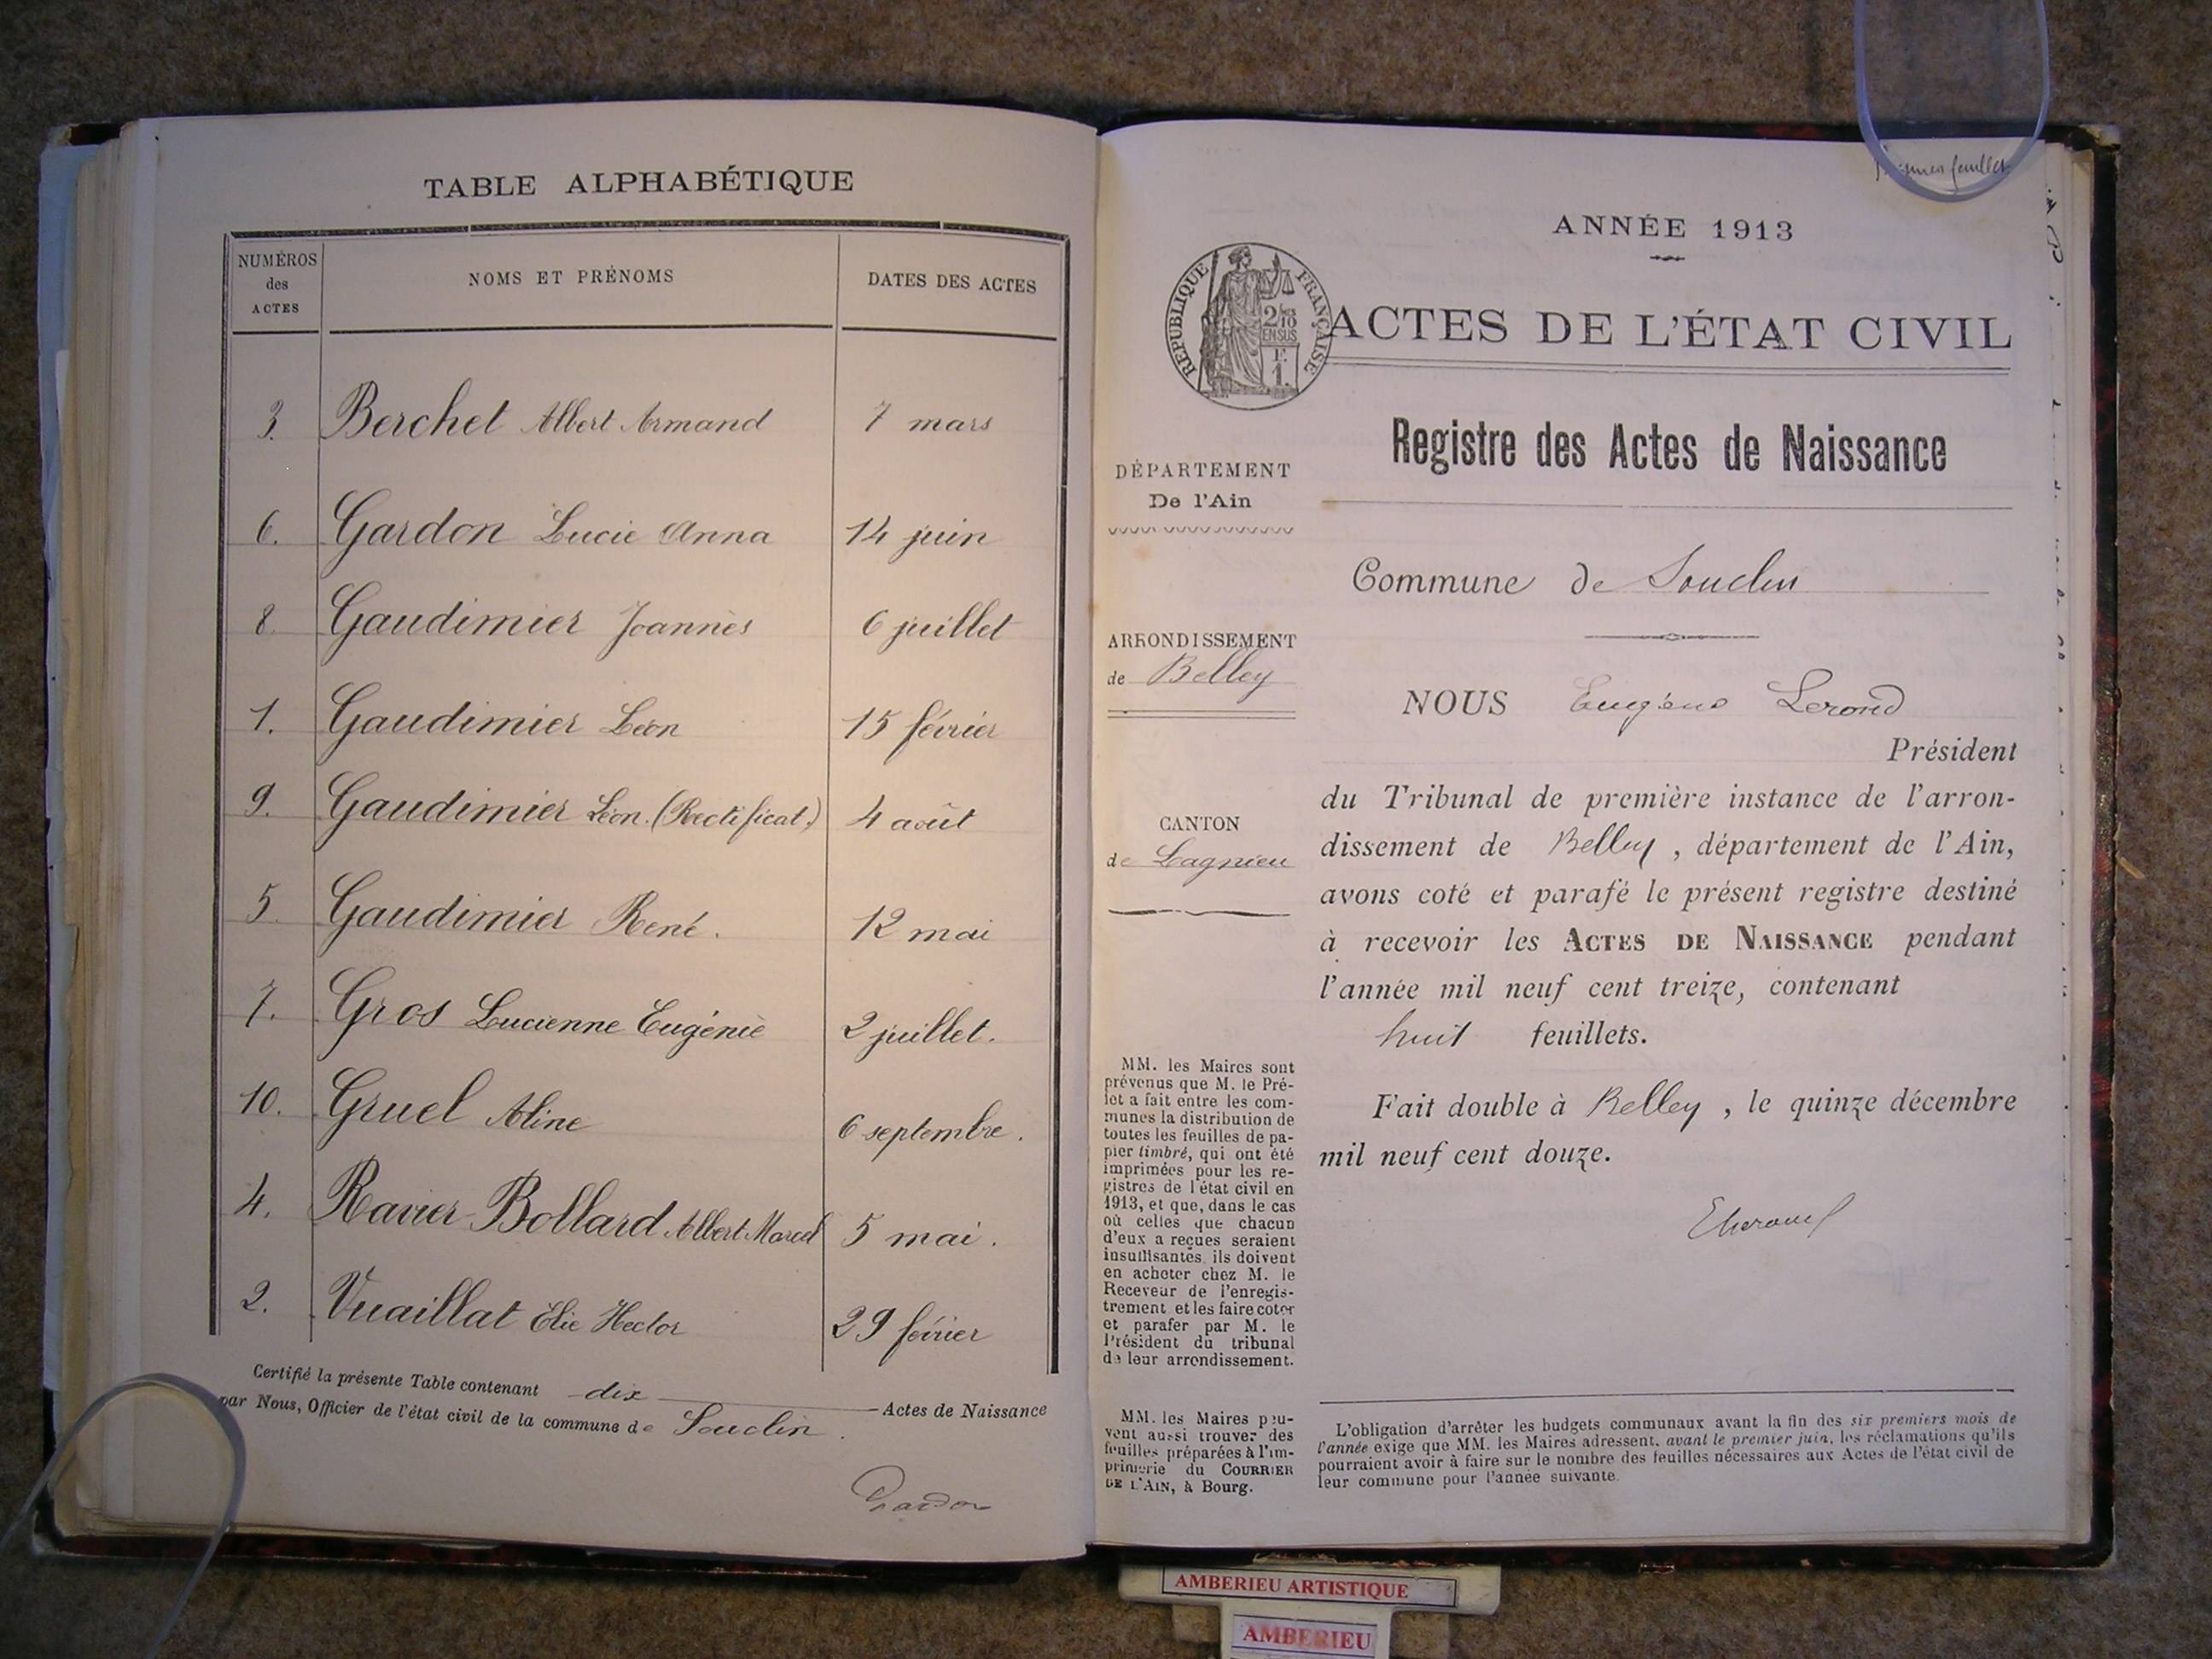 TABLE ALPHABÉTIQUE
NUMÉROS
des
ACTES
NOMS ET PRÉNOMS
DATES DES ACTES
3. Berchet Albert Armand 7 mars
6. Gardon Lucie Anna 14 juin
8. Gaudimier Joannès 6 juillet
1. Gaudimier Léon 15 février
9. Gaudimier Léon. (Rectificat.) 4 août
5. Gaudimier René. 12 mai
7. Gros Lucienne Eugénie 2 juillet.
10. Gruel Aline 6 septembre.
4. Ravier-Bollard Albert Marcel 5 mai.
2. Vuaillat Elie Hector 29 février
Certifié la présente Table contenant dix Actes de Naissance
par Nous, Officier de l'état civil de la commune de Souclin.
Gardon
Premier feuillet
ANNÉE 1913
RÉPUBLIQUE FRANÇAISE
2/10
EN SUS
F.
1.
ACTES DE L'ÉTAT CIVIL
Registre des Actes de Naissance
DÉPARTEMENT
De l'Ain
ARRONDISSEMENT
de Belley
CANTON
de Lagnieu
MM. les Maires sont
prévenus que M. le Pré-
fet a fait entre les com-
munes la distribution de
toutes les feuilles de pa-
pier timbré, qui ont été
imprimées pour les re-
gistres de l'état civil en
1913, et que, dans le cas
où celles que chacun
d'eux a reçues seraient
insuffisantes, ils doivent
en acheter chez M. le
Receveur de l'enregis-
trement et les faire coter
et parafer par M. le
Président du tribunal
de leur arrondissement.
MM. les Maires peu-
vent aussi trouver des
feuilles préparées à l'im-
primerie du COURRIER
DE L'AIN, à Bourg.
Commune de Souclin
NOUS Eugène Lerond
Président
du Tribunal de première instance de l'arron-
dissement de Belley, département de l'Ain,
avons coté et parafé le présent registre destiné
à recevoir les ACTES DE NAISSANCE pendant
l'année mil neuf cent treize, contenant
huit feuillets.
Fait double à Belley, le quinze décembre
mil neuf cent douze.
L'obligation d'arrêter les budgets communaux avant la fin des six premiers mois de
l'année exige que MM. les Maires adressent, avant le premier juin, les réclamations qu'ils
pourraient avoir à faire sur le nombre des feuilles nécessaires aux Actes de l'état civil de
leur commune pour l'année suivante.
AMBERIEU ARTISTIQUE
AMBERIEU